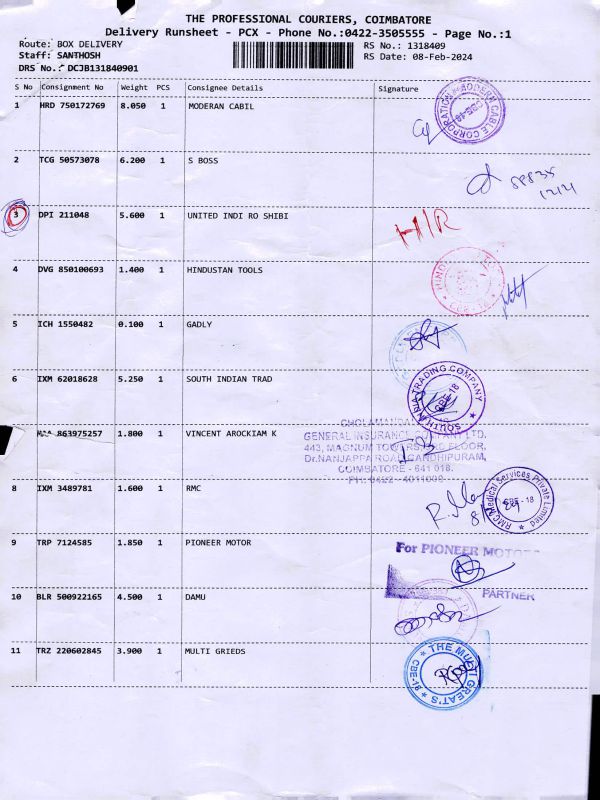 THE PROFESSIONAL COURIERS, COIMBATORE
Delivery Runsheet - PCX - Phone No.:0422-3505555 - Page No.:1
Route: BOX DELIVERY RS No.: 1318409
Staff: SANTHOSH RS Date: 08-Feb-2024
DRS No.: DCJB131840901
S No Consignment No Weight PCS Consignee Details Signature
1 HRD 750172769 8.050 1 MODERAN CABIL
MODERN CABLE CORPORATION
2 TCG 50573078 6.200 1 S BOSS
3 DPI 211048 5.600 1 UNITED INDI RO SHIBI H/R
4 DVG 850100693 1.400 1 HINDUSTAN TOOLS
5 ICH 1550482 0.100 1 GADLY
6 IXM 62018628 5.250 1 SOUTH INDIAN TRAD
SOUTH ASIA TRADING COMPANY
CBE-18
863975257 1.800 1 VINCENT AROCKIAM K
GENERAL INSURANCE COMPANY LTD.
443, MAGNUM TOWERS FLOOR,
Dr.NANJAPPA ROAD, GANDHIPURAM,
COIMBATORE - 641 018.
PH: 0422 -
8 IXM 3489781 1.600 1 RMC
RMC Medical Services Private Limited
CBE - 18
9 TRP 7124585 1.850 1 PIONEER MOTOR
For PIONEER MOTORS
PARTNER
10 BLR 500922165 4.500 1 DAMU
11 TRZ 220602845 3.900 1 MULTI GRIEDS
THE MULTI GREAT'S
CBE-18